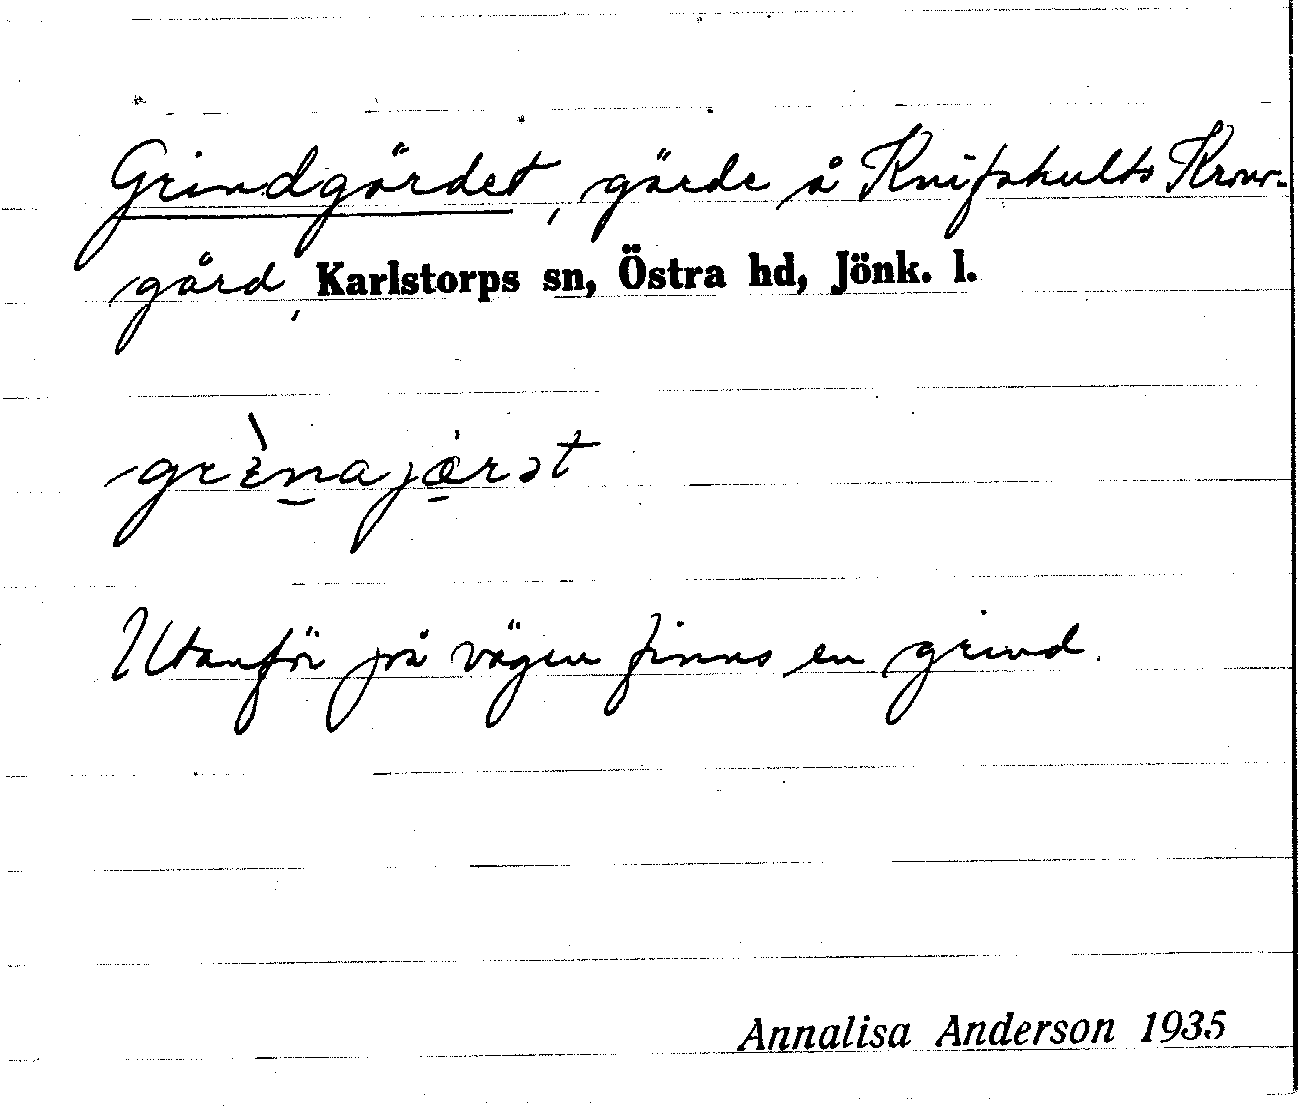 Grindgärdet, gärde å Knifskults Krono-
gård, Karlstorps sn, Östra hd, Jönk. l.
grènajærət
Utanför på vägen finns en grind.
Annalisa Anderson 1935